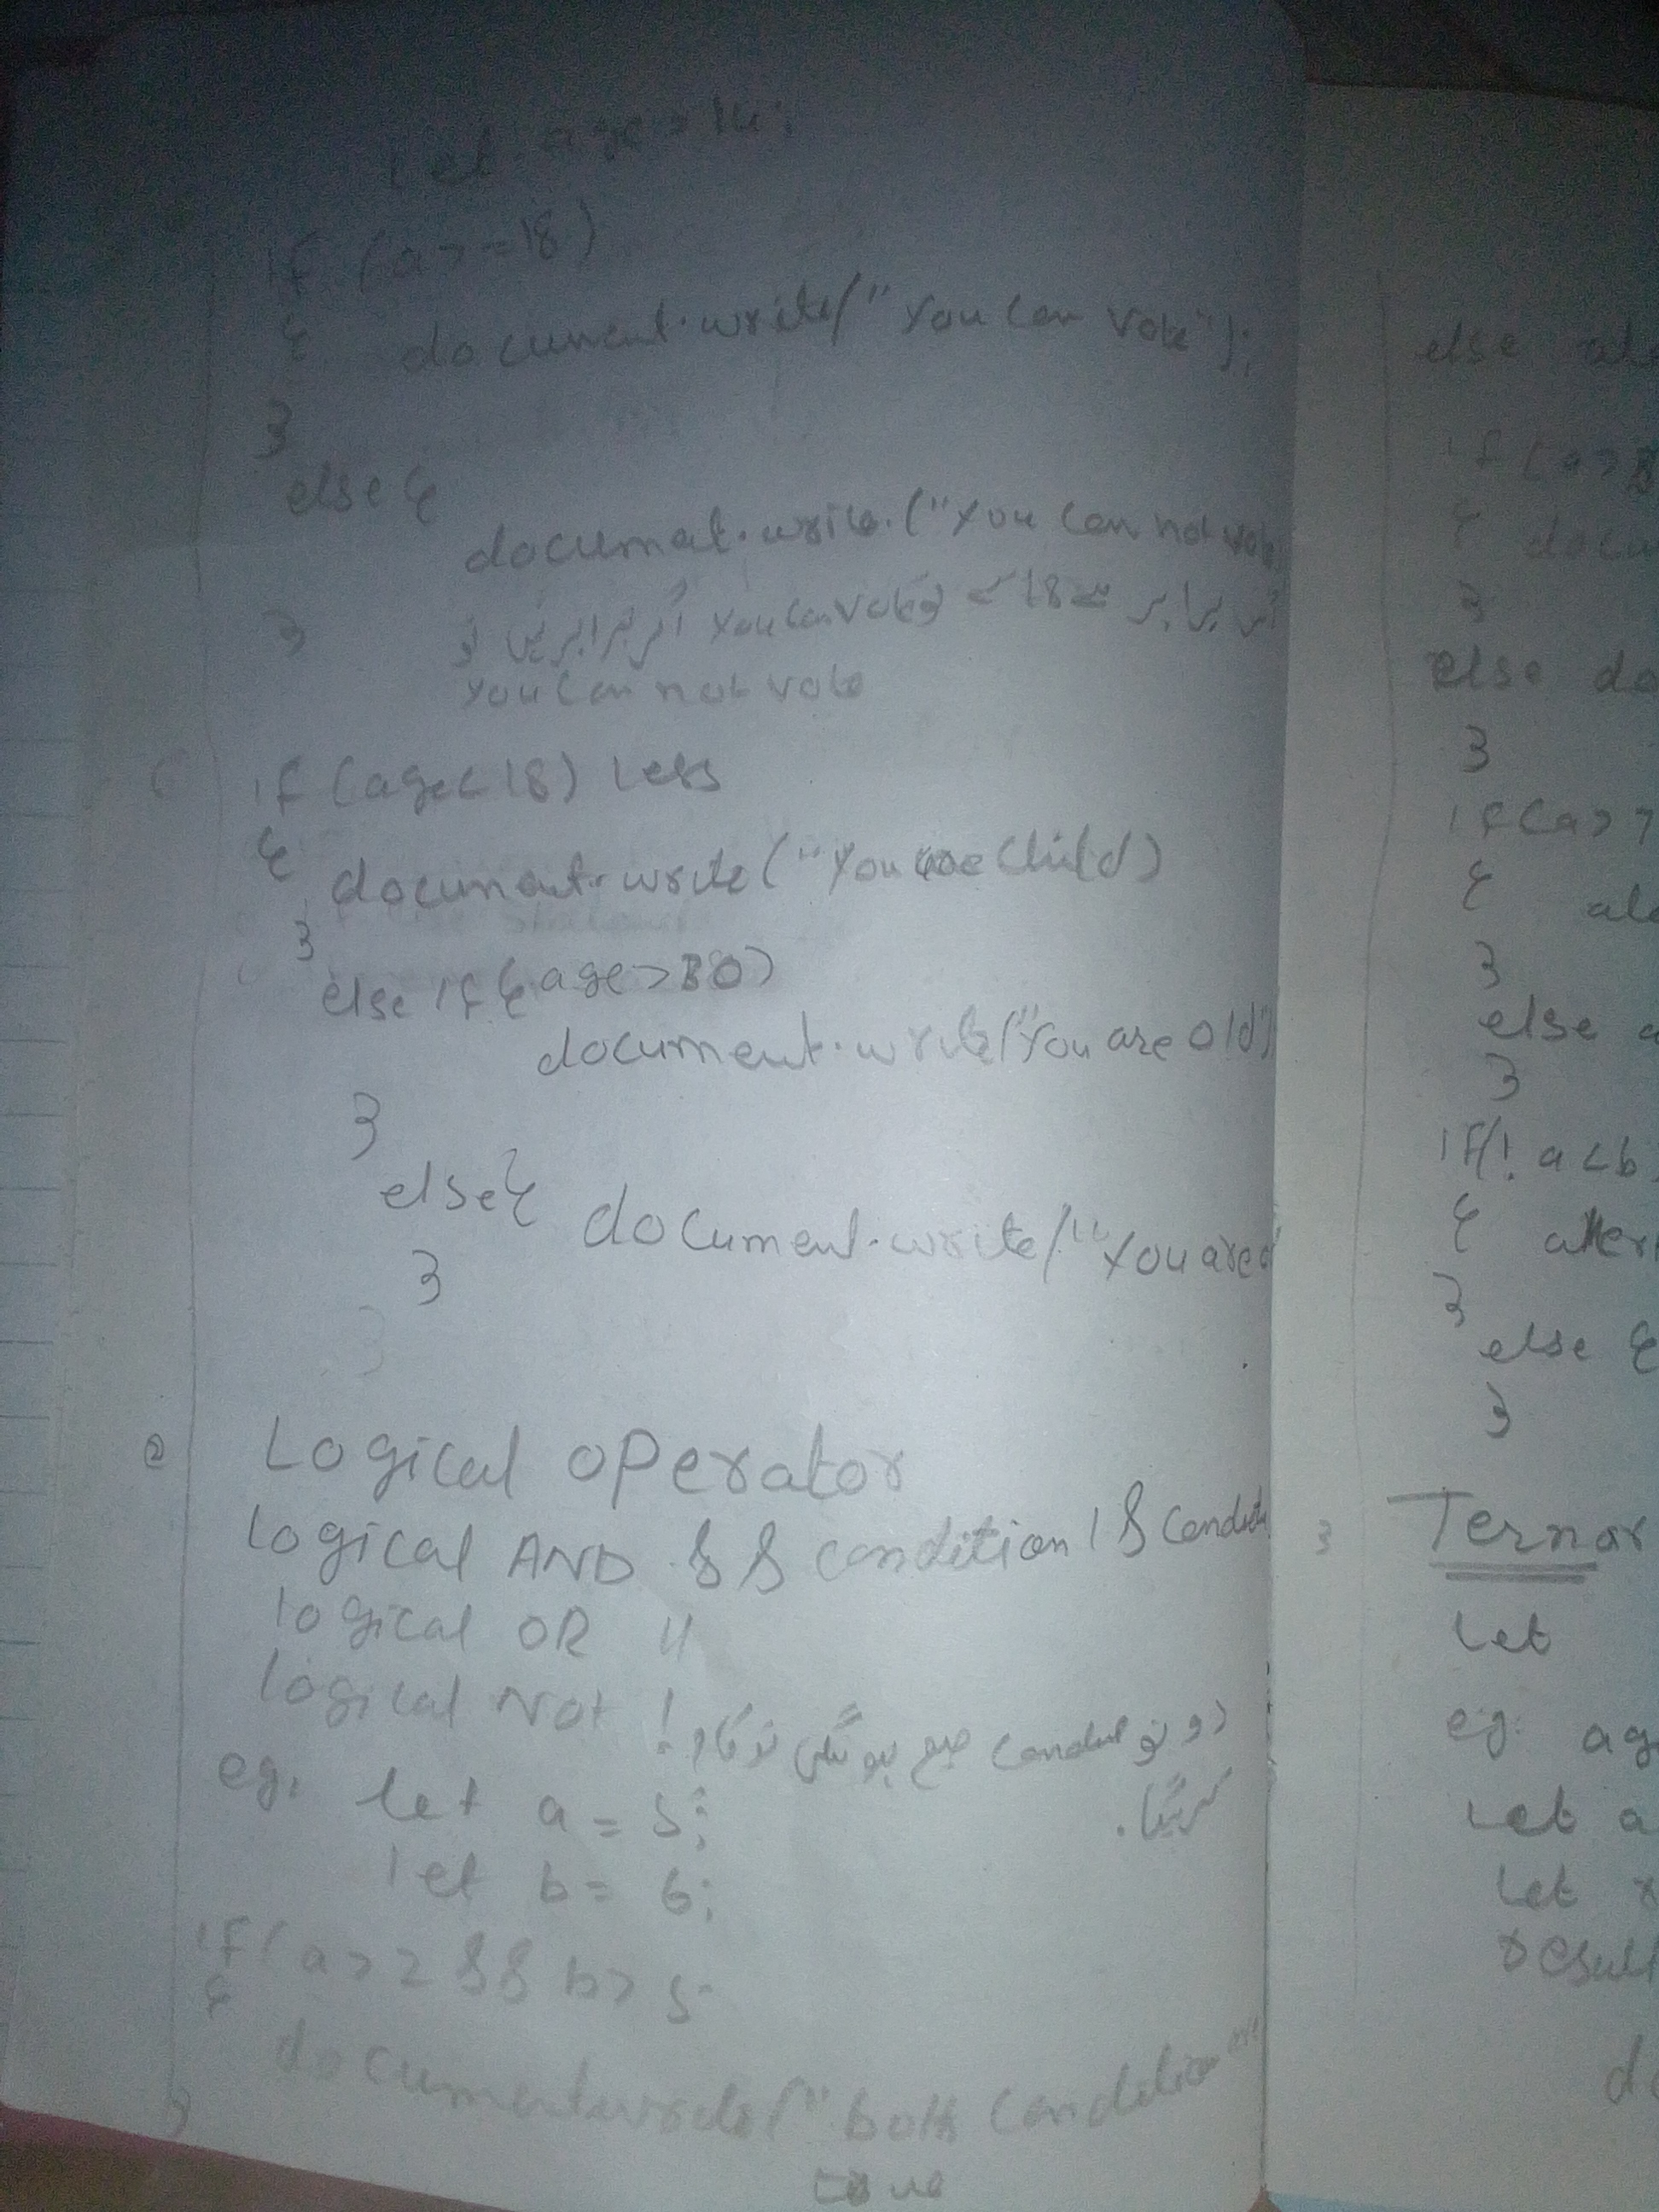 let age = 14;
if (a>=18)
{ document.write("You can vote");
}
else {
document.write.("You can not vote
اگر برابر ہے 18 کے you can vote اگر برابر نہیں تو
} you can not vote
if (age<18) Less
{ document.write("You are child)
}
else if { age>30)
document.write("You are old")
}
else { document.write("You are
}
Logical operator
logical AND && condition 1 & Condit
logical OR ||
logical Not !
دونوں condition صحیح ہونگی تو کام
کریگا.
eg. let a = 5;
let b = 6;
if (a>2 && b>5
{
document.write("both condition are
} true
else ale
if (a>
{ docu
}
else do
}
if(a>7
{ ale
}
else a
}
if(! a<b
{ aler
}
else {
}
Ternar
Let
eg: ag
Let a
Let r
result
do